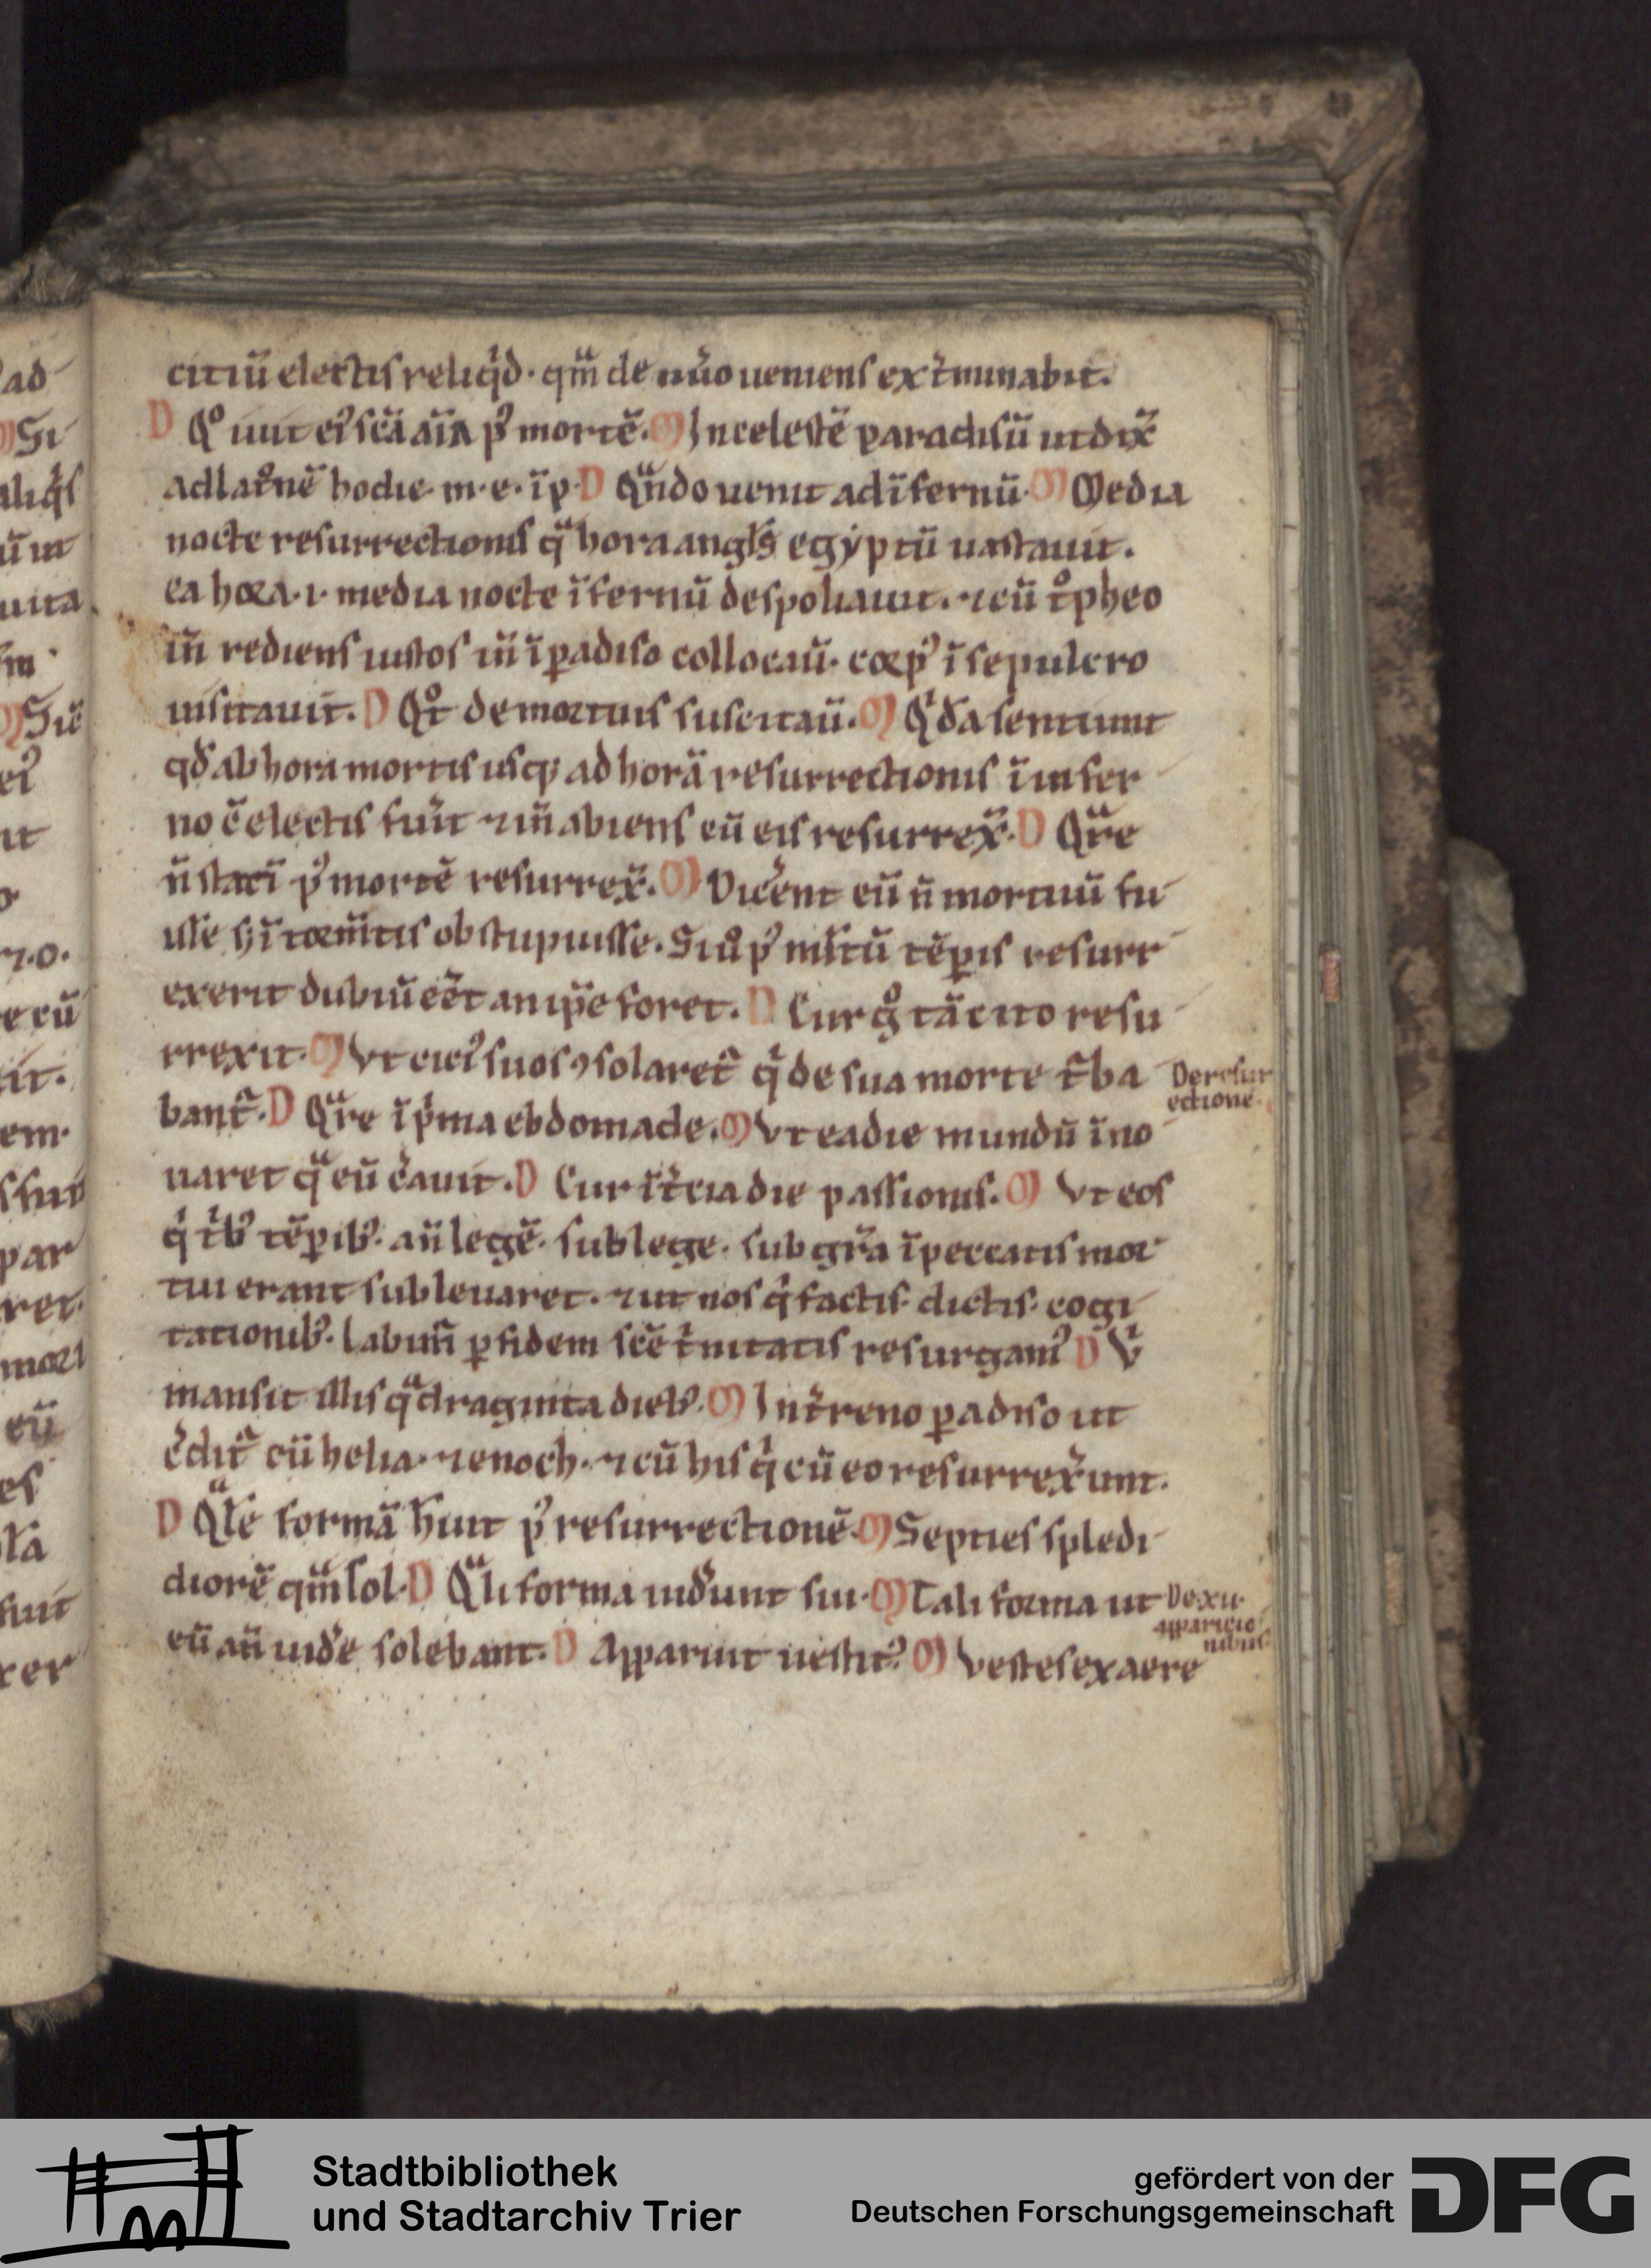 citiū electis reliq̇d · qm̄ de nr̄o ueniens ext̓minabit.
D Qͦ iuit ei᷒ sc̄a aı̄a p᷒ mortē. M In celestē paradisū ut dix̄
ad latͦnē hodie · m · e · ī p · D Qͣndo uenit ad īfernū · M Media
nocte resurrectionis qͣ hora angl̄s egyptū uastauit.
ea hora · i · media nocte īfernū despoliauit. ⁊ cū tͥpheo
iñ rediens iustos iñ ī ꝑadiso collocaū · corp᷒ ī sepulcro
uisitauit. D Qͦt de mortuis suscitaū. M Qͥda sentiunt
qd̄ ab hora mortis usq; ad horā resurrectionis ī infer
no c̄ electis fuīt ⁊ iñ abiens cū eis resurrex̄. D Qͣre
n̄ statī p᷒ mortē resurrex̄. M Dic̓ent eū n̄ mortuū fu
isse s; ī torm̄tis obstupuisse. Siu̓ p᷒ ml̄tū tēꝑis resurr
exerit dubiū eēt an ip̄e foret. D Cur gͦ tā cito resu
rrexit. M Vt cici᷒ suos ꝯsolaret᷑ qͥ de sua morte t᷑ba
bant᷑. D Qͣre ī pͥma ebdomade. M Vt ea die mundū īno
uaret qͣ eū c̓auit. D Cur ī t̓cia die passionis. M Vt eos
qͥ tͥb᷒ tēꝑib᷒. añ legē. sub lege. sub gr̄a ī peccatis mor
tui erant subleuaret. ⁊ ut nos qͥ factis. dictis. cogi
tationib᷒. labim̄ ꝑ fidem sc̄e tͥnitatis resurgam᷒ D Vͥ
mansit illis qͣdraginta dieb᷒. M In t̓reno ꝑadiso ut
c̓dit᷑ cū helia · ⁊ enoch · ⁊ cū his qͥ cū eo resurrex̓unt.
D Qͣlē formā h̄uit p᷒ resurrectionē. M Septies spledi
diorē qm̄ sol. D Qͣli forma uid̓unt sui. M Tali forma ut
eū añ uid̓e solebant. D Apparuit uestit᷒ M Vestes ex aere
De resur
ectione.
De xu
apparicio
nibus
Stadtbibliothek
und Stadtarchiv Trier
gefördert von der
Deutschen Forschungsgemeinschaft
DFG